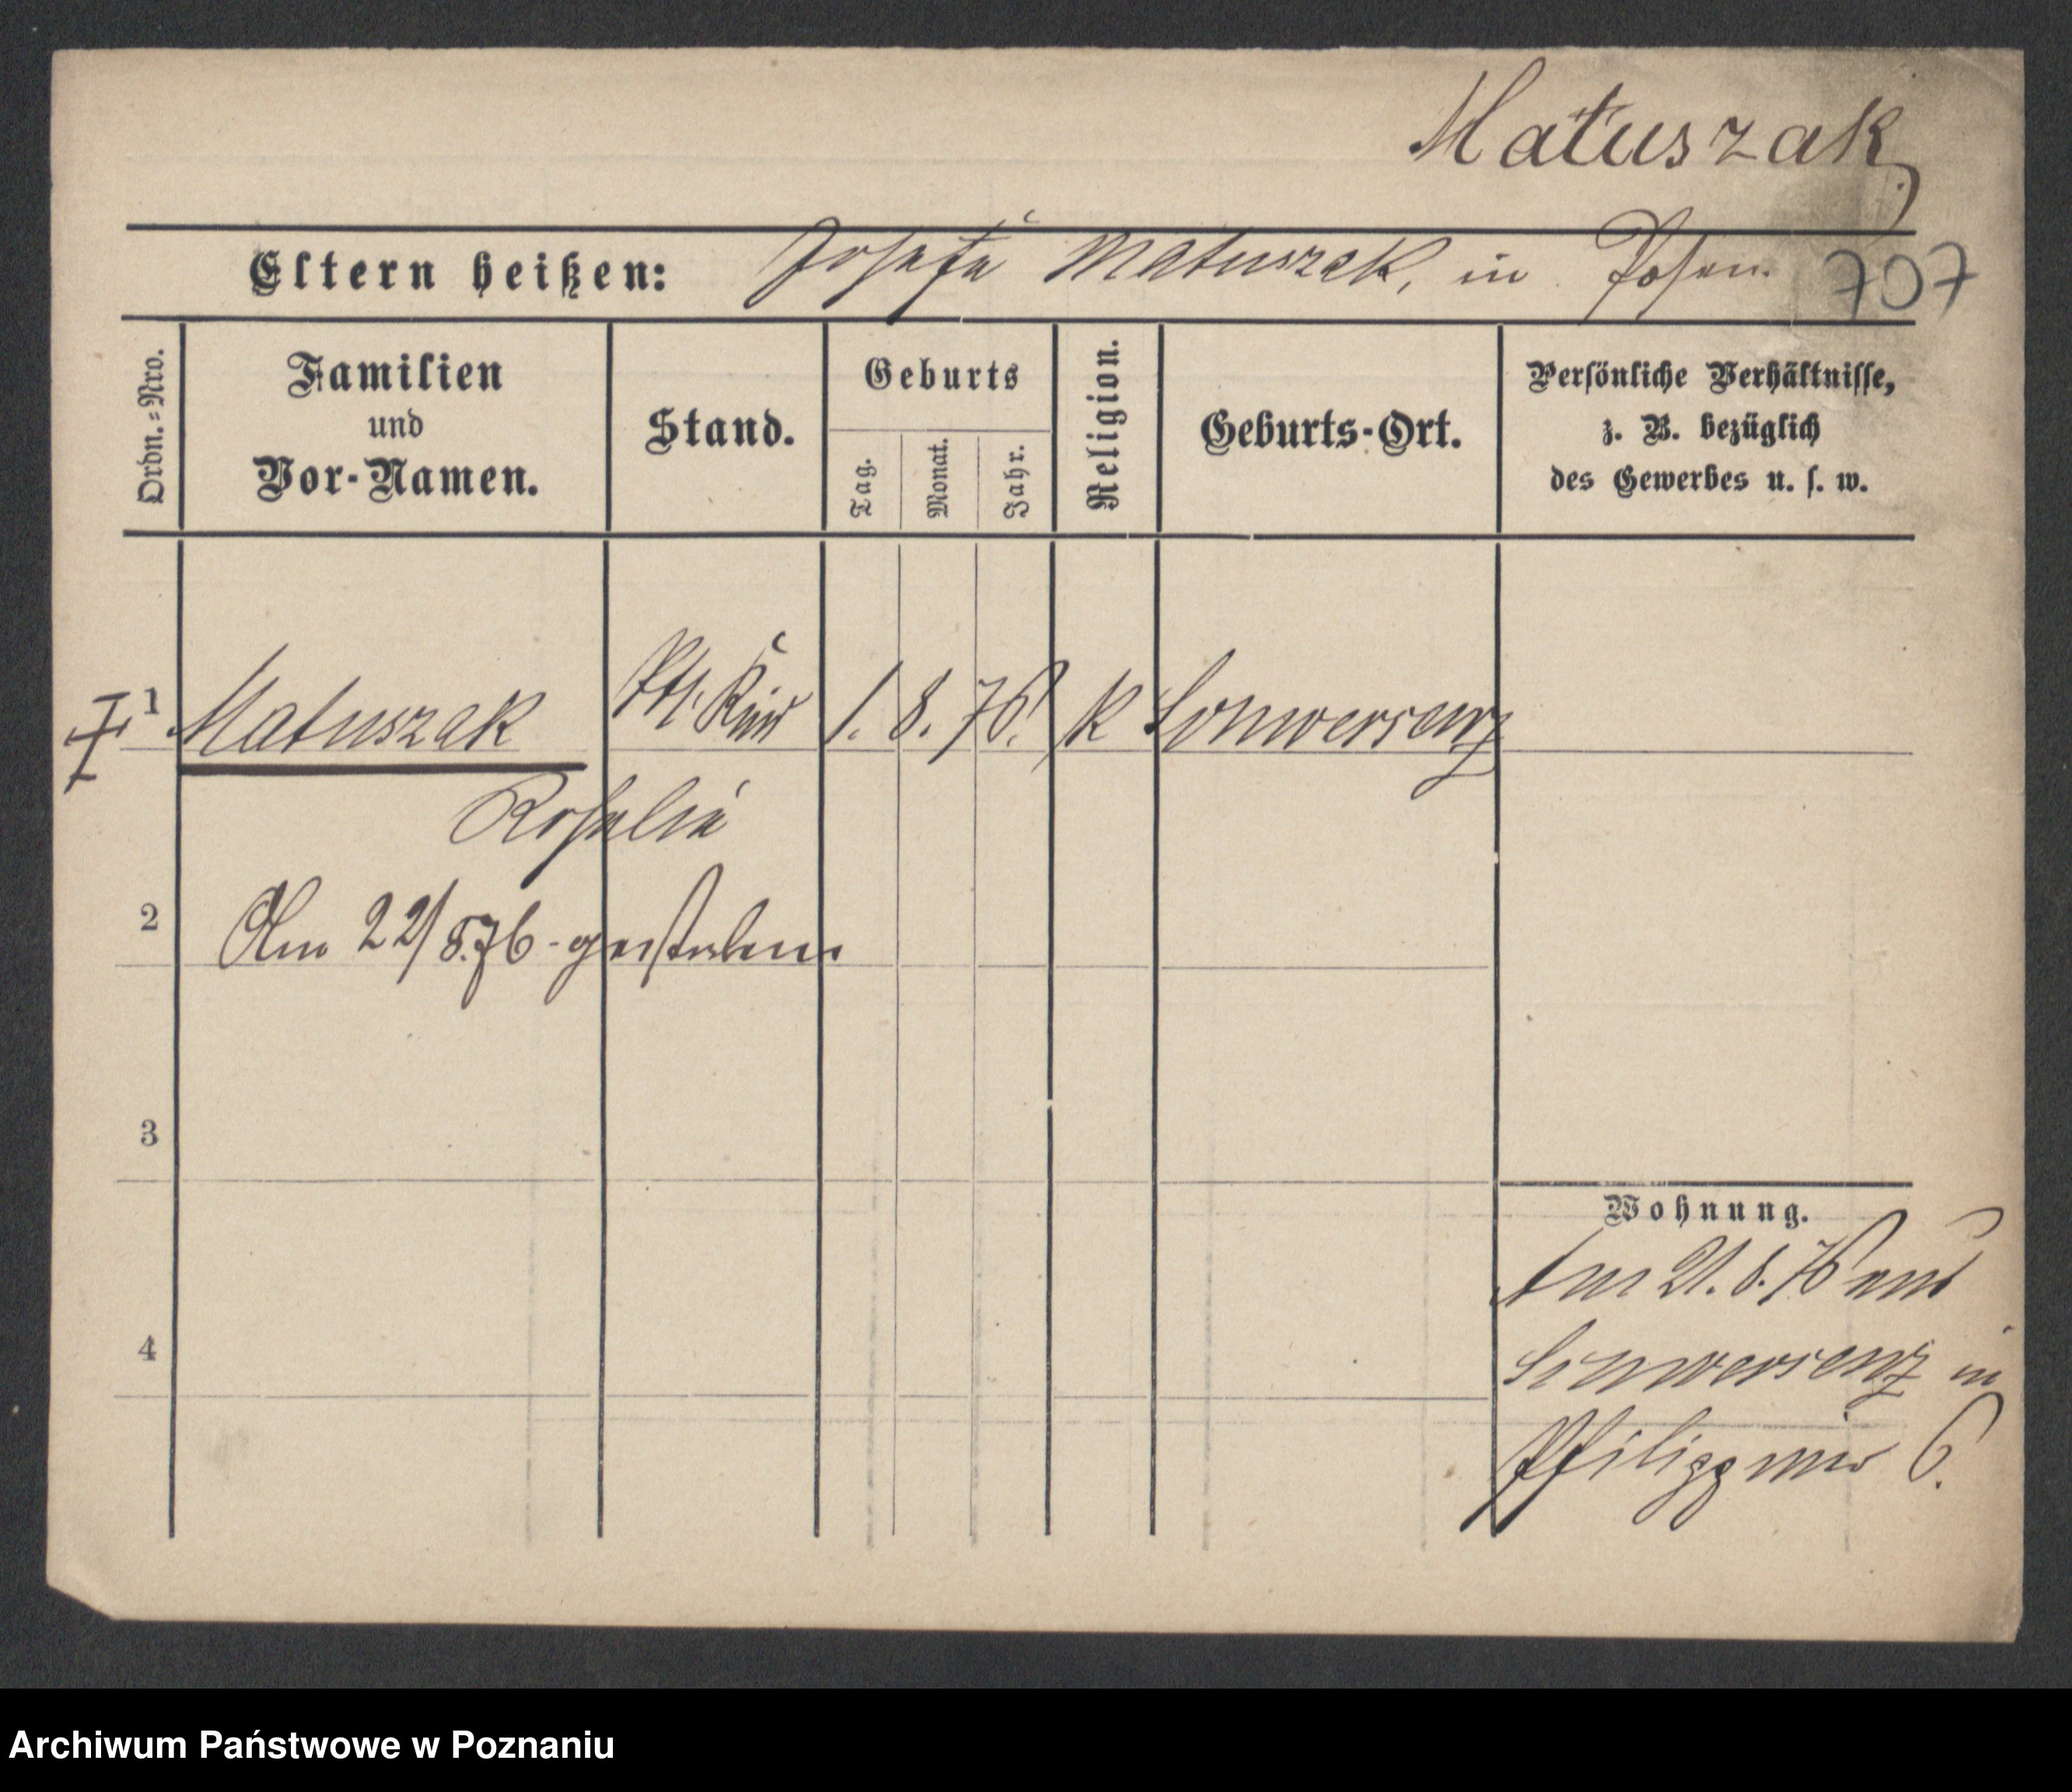 Matuszak
Eltern heißen: Josefa Matuszak, in Posen. 707
Ordn.=Nro.
Familien
und
Vor-Namen.
Stand.
Geburts
Tag.
Monat.
Jahr.
Religion.
Geburts-Ort.
Persönliche Verhältnisse,
z. B. bezüglich
des Gewerbes u. s. w.
1 Matuszak Kind 1. 8. 76. K Schwersenz
Rosalia
2 Am 22/8.76 - gestorben
3
Wohnung.
Am 21.8.76 aus
4
Schwersenz in
6.
Archiwum Państwowe w Poznaniu